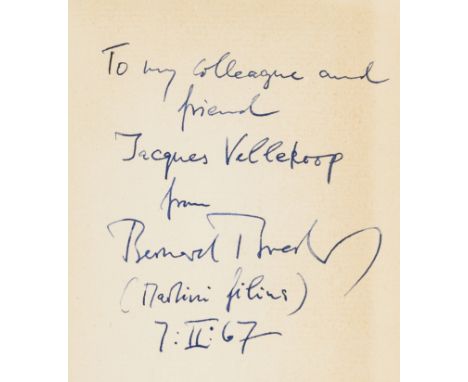 To my colleague and
friend
Jacques Vellekoop
from
Bernard
(Martini filius)
7:II:67